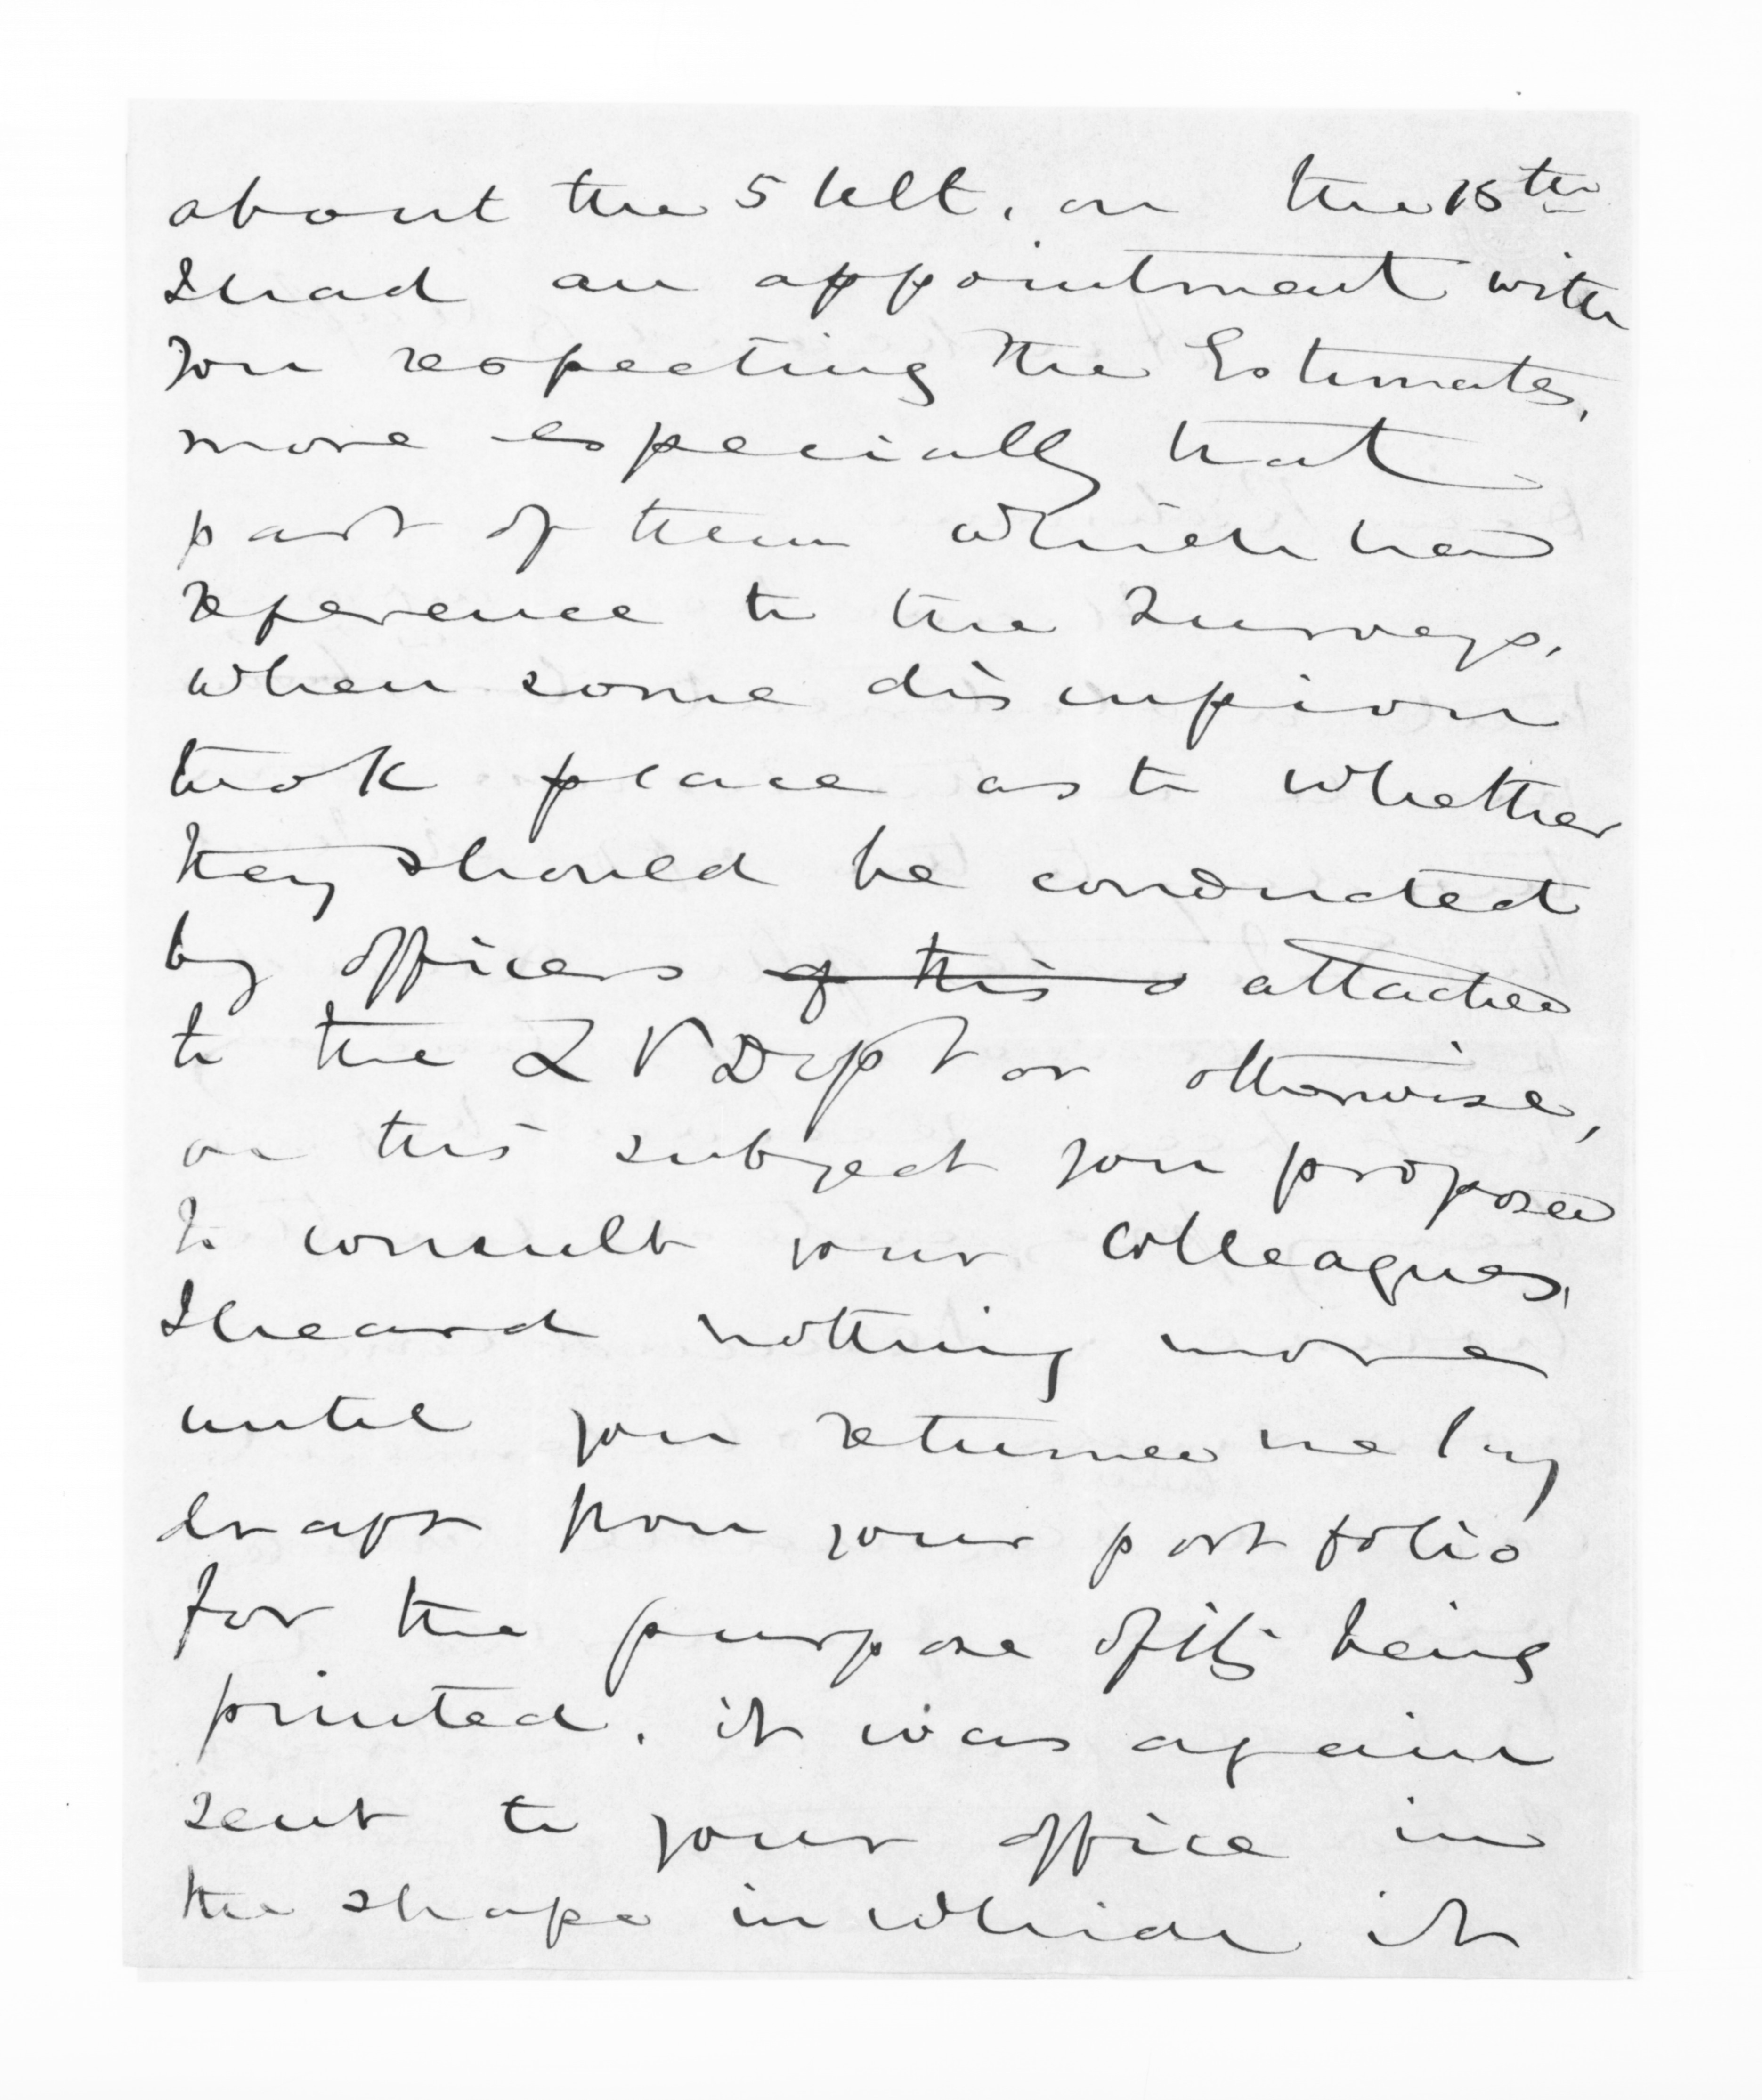 about the 5 Ult, on the 15th
I had an appointment with
you respecting the Estimates,
more especially that
part of them which had
reference to the Surveys,
when some discussion
took place as to whether
they should be conducted
by officers of this attached
to the L P Dept or otherwise,
on this subject you proposed
to consult your colleagues,
I heard nothing more
until you returned me my
draft from your portfolio
for the purpose of its being
printed, it was again
sent to your office in
the shape in which it